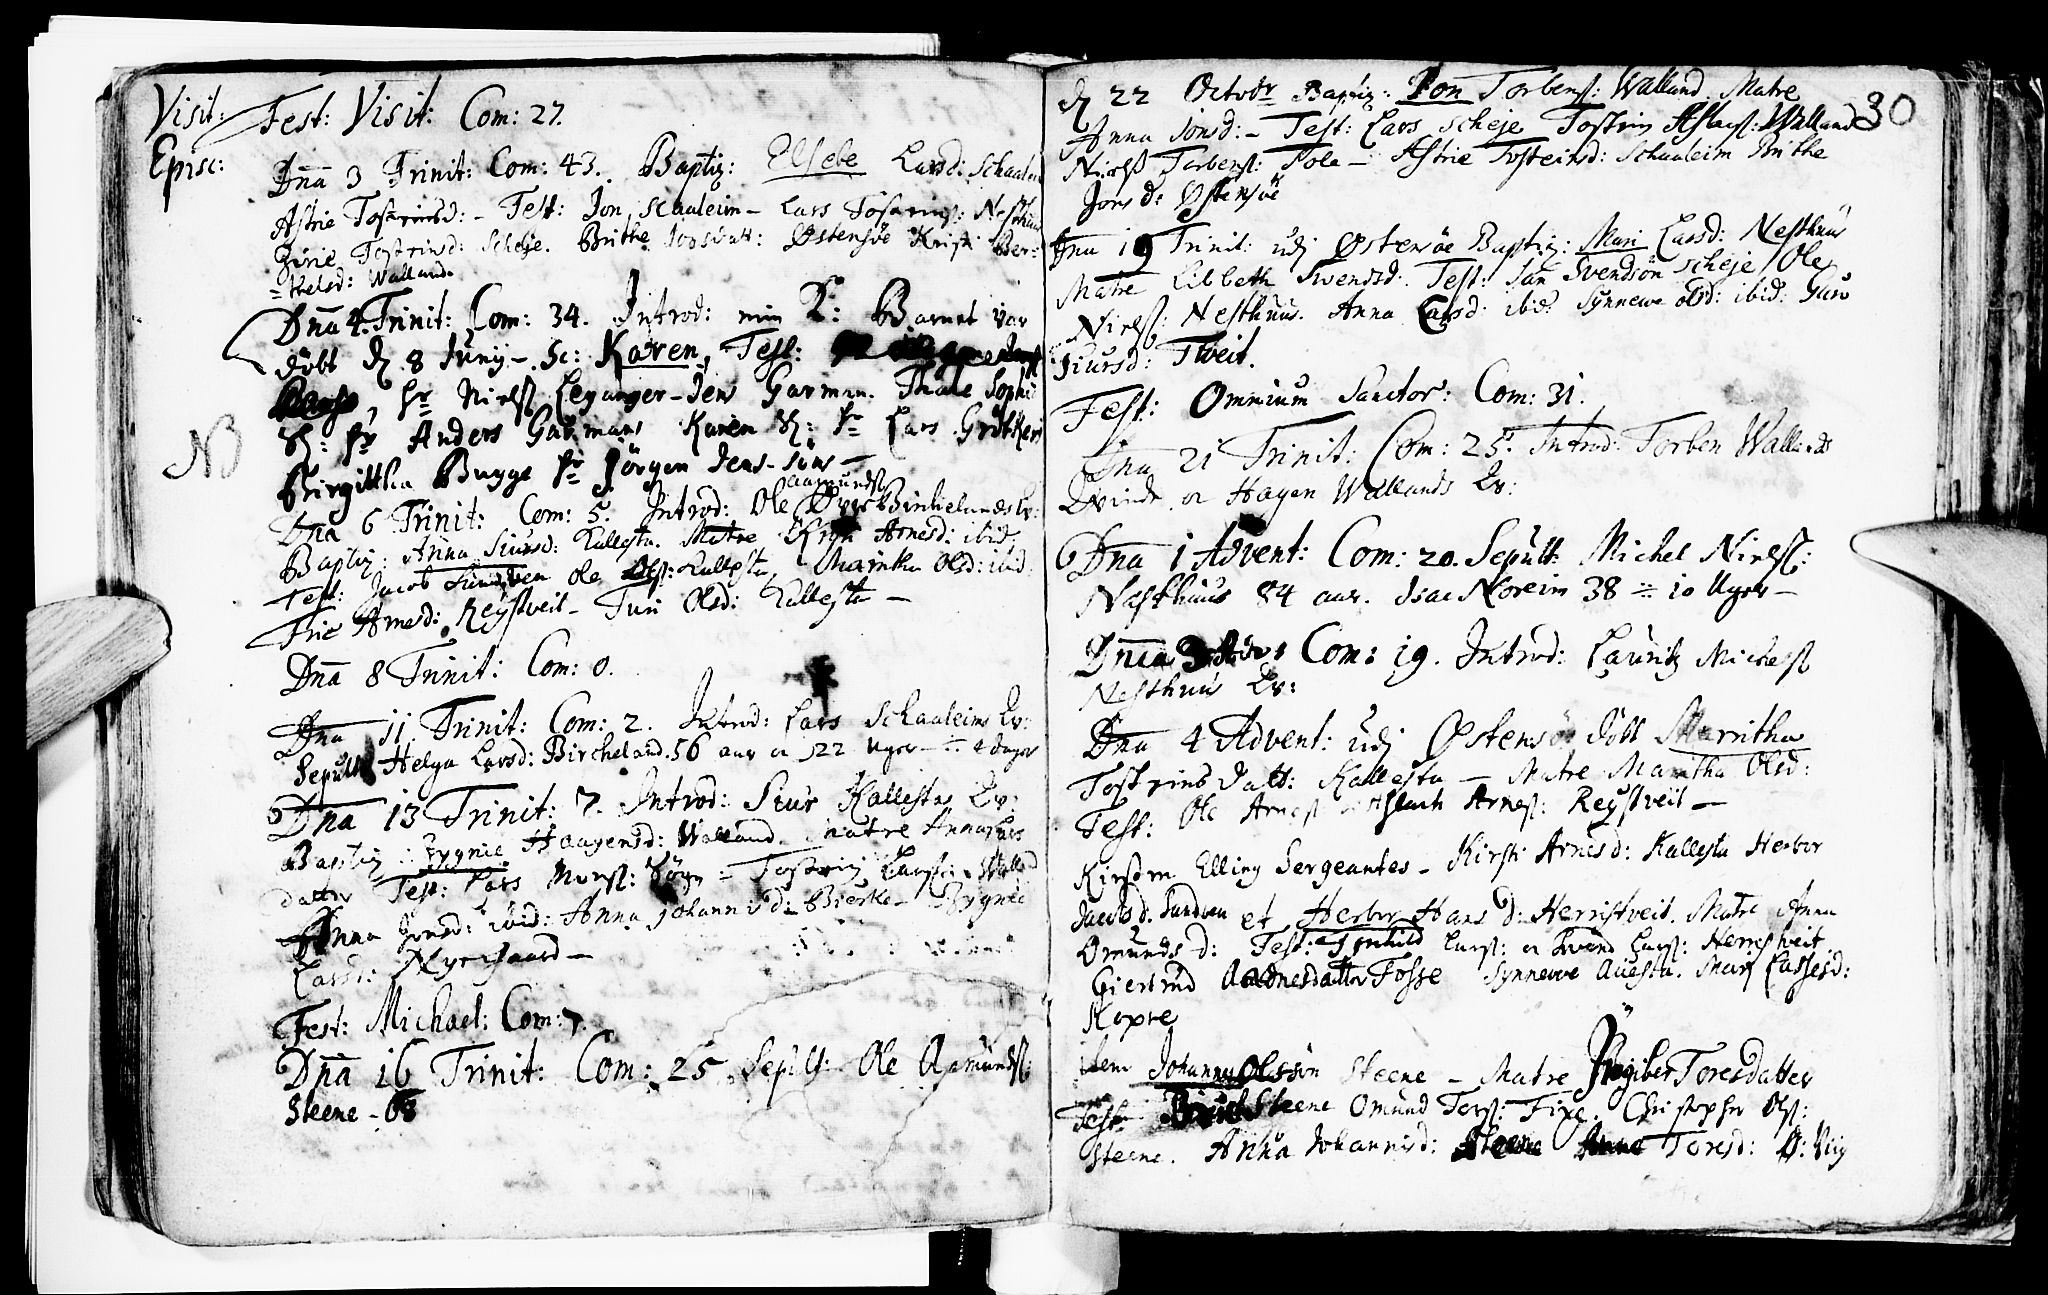 Visit: Fest: Visit: Com: 27.
Episc:
Dnã 3 Trinit: Com: 43. Baptiz: Elsebe Larsd: Schaaleim
Astrie Tosteinsd: – Test: Jon Scaaleim – Lars Tosteins: Nesthuus
Zirie Tosteinsd: Scheje. Brithe Joosdatt: Østensöe Kristi Ber=
=thelsd: Walland.
Dnã 4 Trinit: Com: 34. Introd: min K: Barnet var
döbt d. 8 Junij – Sc: Karen, Test:
Hr Nielsß Leganger – Jens Garman. Thale Sophie
Sl: Hr Anders Garmans Karen Sl: Hr Lars Grötkers
Birgittha Bugge Hr Jörgen Jens-söns –
NB
Dna 6 Trinit: Com: 5. Introd: Ole Aamundsß Birkelands Qv:
Baptiz: Anna Siursd: Kallestu. Matre Kryn Arnesd: ibid.
Test: Jacob Sundven Ole Olsß: Kallestu, Maritha Olsd: ibid.
Fric Arnesd: Reystveit – Turi Olsd: Kallestu –
Dnã 8 Trinit: Com: 0.
Dna 11 Trinit: Com: 2. Introd: Lars Schaaleims Qv:
Sepult Helga Larsd: Bircheland. 56 aar er 22 Uger – 4 dager
Dna 13 Trinit: 7. Introd: Siur Kallestus Qv:
Baptiz: Zygnie Haagensd: Walland. Matre Anna Lars
datter Test: Lars Monsß: – Tostein Larsß: Walland
Anna Jonsd: ibid: Anna Johannisd: Bierke – Zygnie
Larsd: Nyegaard –
Fest: Michael: Com: 7.
Dnã 16 Trinit: Com: 25 Sepult: Ole Aamundsß:
Steene – 68
30
d. 22 Octobr Baptiz: Jon Torbensß: Walland. Matre
Anna Jonsd: – Test: Lars Scheje Tostein Aslacsß: Walland
Nielsß Torbensß: Sole – Astrie Tosteinsd: Schaaleim Brithe
Jonsd: Østensöe
Dna 19 Trinit: udj Østensöe Baptiz: Mari Larsd: Nesthuus
Matre Lisbeth Swendsd: Test: Jan Svendsön Scheje Ole
Nielsß: Nesthuus. Anna Larsd: ibid: Synnewe Olsd: ibid: Guro
Siursd: Tveit.
Fest: Omnium Sanctor: Com: 31.
Dna 21 Trinit: Com: 25. Introd: Torben Wallands
Qvinde er Hagen Wallands Qv:
Dna 1 Advent: Com: 20. Sepult: Michel Nielsß:
Nesthuus 84 aar. Isac Noreim 38 – 10 Uger –
Dnica 3 Adv: Com: 19. Introd: Lauritz Michelsß
Nesthuus Qv:
Dna 4 Advent: udj Østensö döbt Maritha
Tosteins datt: Kallestu – Matre Maritha Olsd:
Test: Ole Arnesß Aslach Arnesß: Reystveit –
Kirsten Elling Sergeantes – Kirsti Arnesd: Kallestu Herbor
Jacobsd: Sundven et Herbor Hans D: Herristveit. Matre Anna
Omunds D: Test: Torkild Larsß: er Twend Larsß: Herrestveit
Giertrud Aadnesdatter Fosse Synnewe Auestu. Mari Lassesd:
Kopre
item Johanna Olssön Steene – Matre Ingiber Toresdatter
Test: Steene Omund Torsß: Fixe. Christopher Olsß:
Steene. Anna Johannisd: Steene Anne Toresd: Ø: Viig